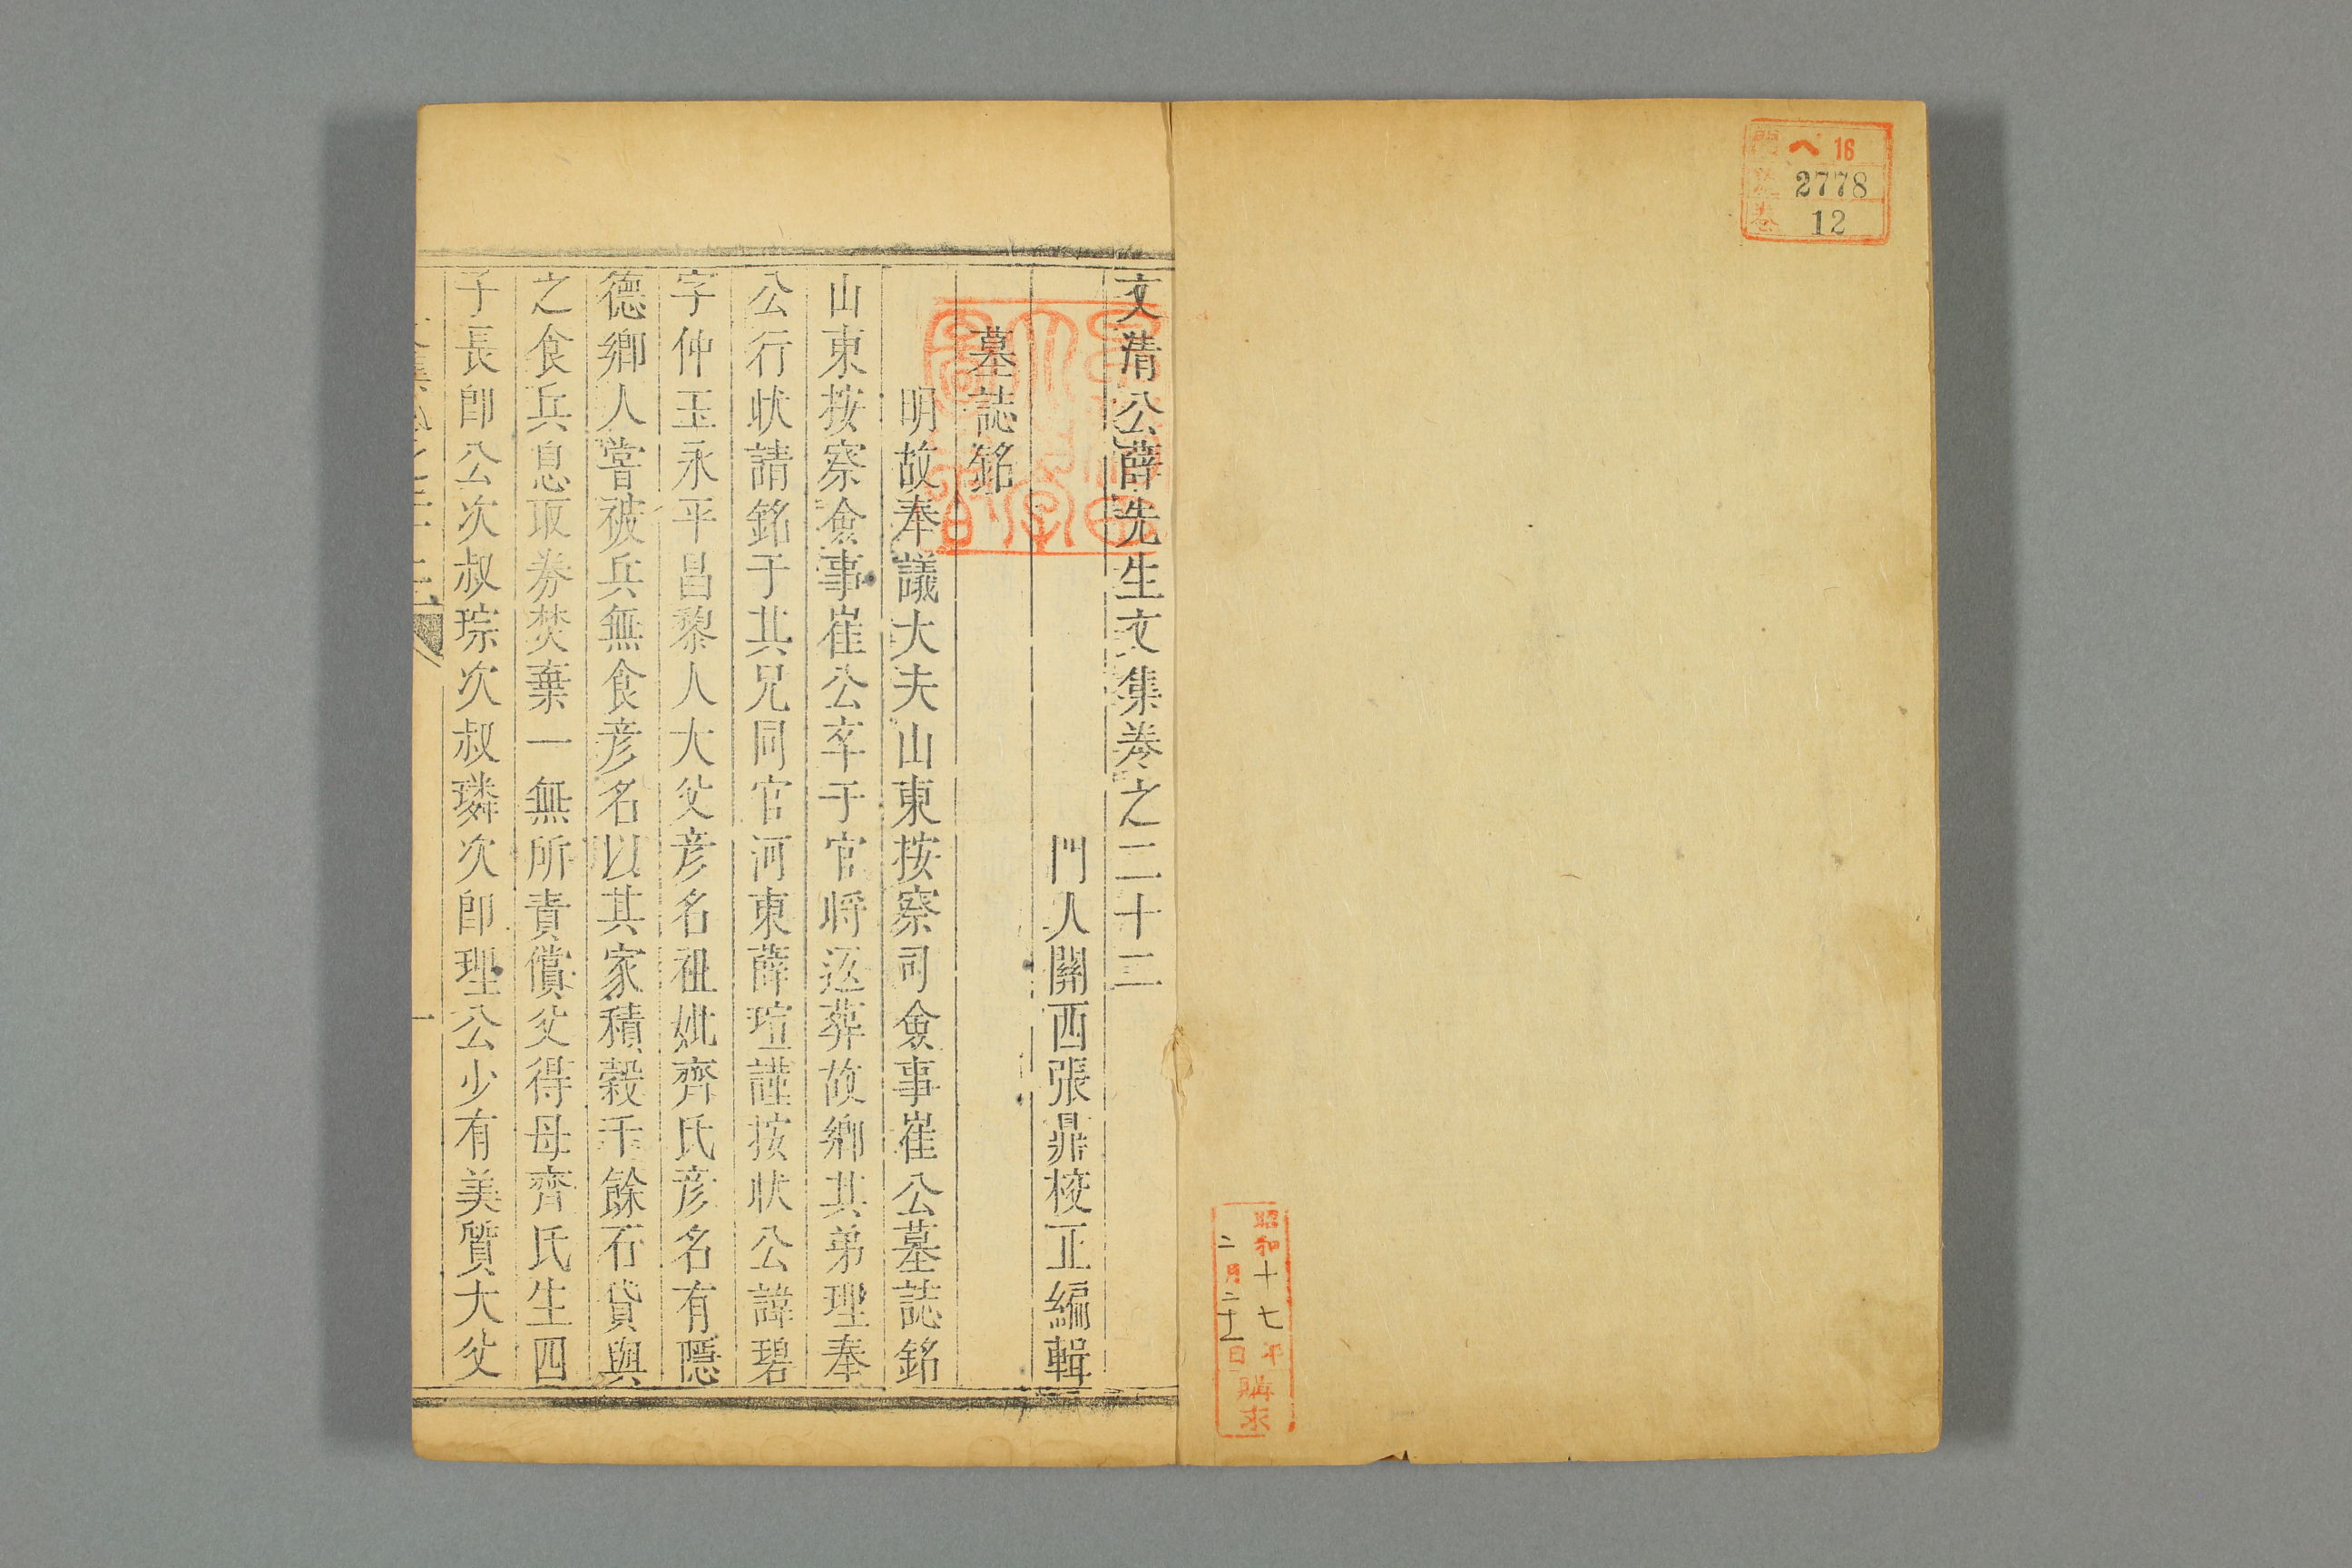 門 ヘ16
号 2778
卷 12
昭和十七年
二月二十一日
購求
文清公薛先生文集卷之二十二
門人關西張鼎校正編輯
墓誌銘
明故奉議大夫山東按察司僉事崔公墓誌銘
山東按察僉事崔公卒于官將返葬故鄉其弟理奉
公行狀請銘于其兄同官河東薛瑄謹按狀公諱碧
字仲玉永平昌黎人大父彦名祖妣齊氏彦名有隱
德鄉人嘗被兵無食彦名以其家積穀千餘石貸與
之食兵息取券焚棄一無所責償父得母齊氏生四
子長即公次叔琮次叔璘次即理公少有美質大父